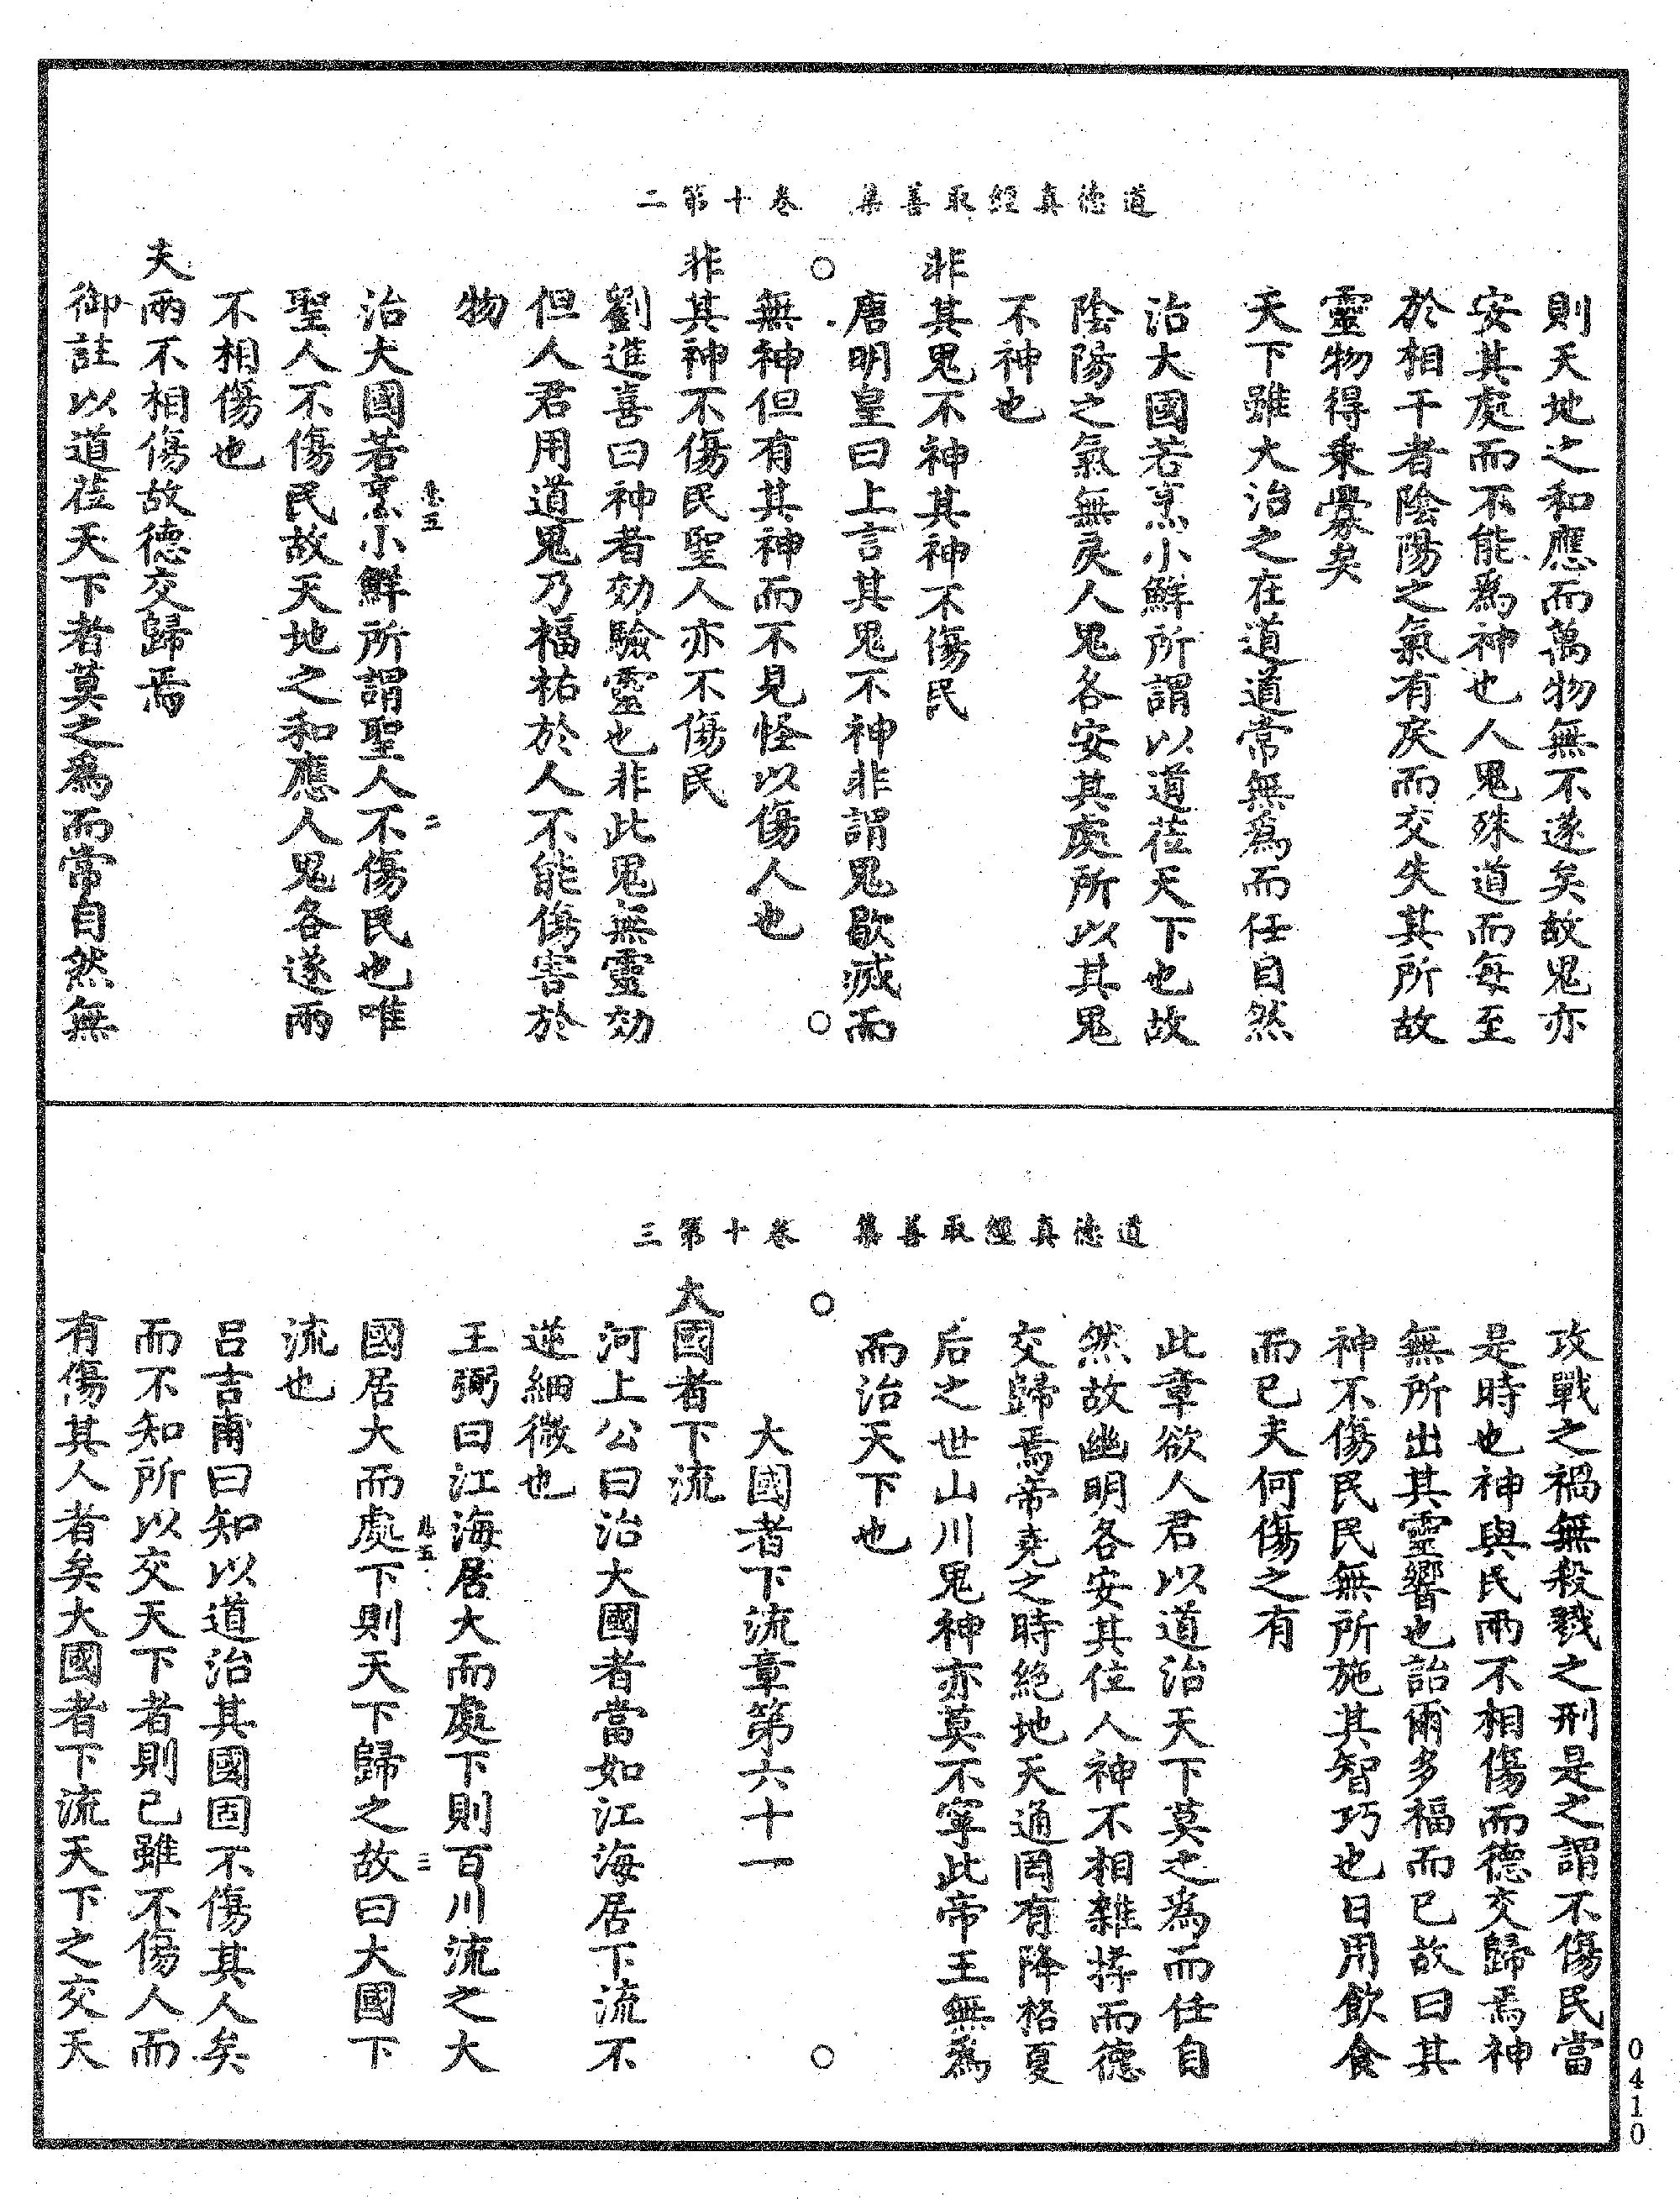 道德真經取善集　卷十第二
則天地之和應而萬物無不遂矣故鬼亦
安其處而不能爲神也人鬼殊道而每至
於相干者陰陽之氣有戾而交失其所故
靈物得乗釁矣
天下雖大治之在道道常無爲而任自然
治大國若烹小鮮所謂以道莅天下也故
陰陽之氣無戾人鬼各安其處所以其鬼
不神也
非其鬼不神其神不傷民
唐明皇曰上言其鬼不神非謂鬼歇滅而
無神但有其神而不見怪以傷人也
非其神不傷民聖人亦不傷民
劉進喜曰神者効驗靈也非此鬼無靈効
但人君用道鬼乃福祐於人不能傷害於
物
治大國若烹小鮮所謂聖人不傷民也唯
聖人不傷民故天地之和應人鬼各遂兩
不相傷也
夫兩不相傷故德交歸焉
御註以道莅天下者莫之爲而常自然無
道德真經取善集　卷十第三
攻戰之禍無殺戮之刑是之謂不傷民當
是時也神與民兩不相傷而德交歸焉神
無所出其靈響也詒爾多福而已故曰其
神不傷民民無所施其智巧也日用飲食
而已夫何傷之有
此章欲人君以道治天下莫之爲而任自
然故幽明各安其位人神不相雜揉而德
交歸焉帝堯之時絶地天通罔有降格夏
后之世山川鬼神亦莫不寧此帝王無爲
而治天下也
大國者下流章第六十一
大國者下流
河上公曰治大國者當如江海居下流不
逆細微也
王弼曰江海居大而處下則百川流之大
國居大而處下則天下歸之故曰大國下
流也
呂吉甫曰知以道治其國固不傷其人矣
而不知所以交天下者則已雖不傷人而
有傷其人者矣大國者下流天下之交天
0410